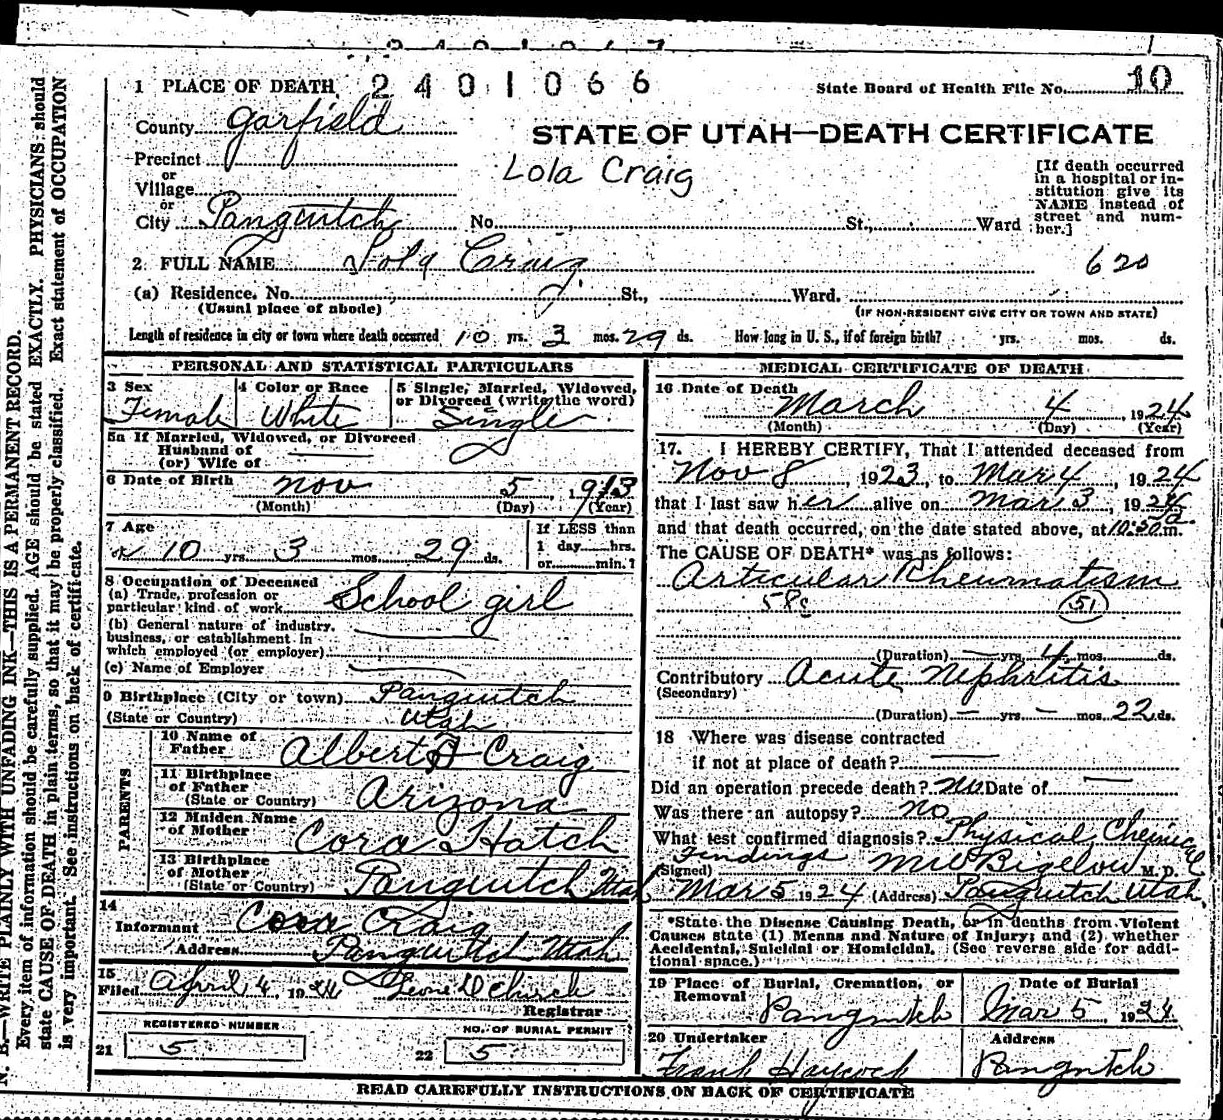 10
1 PLACE OF DEATH 2401066 State Board of Health File No.
County Garfield
STATE OF UTAH—DEATH CERTIFICATE
Precinct
or
Village
or
City Panguitch No. St., Ward
Lola Craig
[If death occurred
in a hospital or in-
stitution give its
NAME instead of
street and num-
ber.]
2 FULL NAME Lola Craig 620
(a) Residence. No. St., Ward.
(Usual place of abode) (IF NON-RESIDENT GIVE CITY OR TOWN AND STATE)
Length of residence in city or town where death occurred 10 yrs. 3 mos. 29 ds. How long in U. S., if of foreign birth? yrs. mos. ds.
PERSONAL AND STATISTICAL PARTICULARS
3 Sex Female
4 Color or Race White
5 Single, Married, Widowed,
or Divorced (write the word)
Single
5a If Married, Widowed, or Divorced
Husband of
(or) Wife of
6 Date of Birth Nov 5, 1913
(Month) (Day) (Year)
7 Age 10 yrs. 3 mos. 29 ds.
If LESS than
1 day hrs.
or min.?
8 Occupation of Deceased
(a) Trade, profession or
particular kind of work School girl
(b) General nature of industry,
business, or establishment in
which employed (or employer)
(c) Name of Employer
9 Birthplace (City or town) Panguitch
(State or Country) Utah
PARENTS
10 Name of
Father Albert Craig
11 Birthplace
of Father
(State or Country) Arizona
12 Maiden Name
of Mother Cora Hatch
13 Birthplace
of Mother
(State or Country) Panguitch Utah
14
Informant Cora Craig
Address Panguitch Utah
15
Filed April 4, 1924
Registrar
REGISTERED NUMBER
21 5
NO. OF BURIAL PERMIT
22 5
MEDICAL CERTIFICATE OF DEATH
16 Date of Death March 4, 1924
(Month) (Day) (Year)
17. I HEREBY CERTIFY, That I attended deceased from
Nov 8, 1923, to Mar 4, 1924
that I last saw her alive on Mar 3, 1924
and that death occurred, on the date stated above, at m.
The CAUSE OF DEATH* was as follows:
Articular Rheumatism
51
(Duration) — yrs. 4 mos. ds.
Contributory Acute Nephritis
(Secondary)
(Duration) — yrs. — mos. 22 ds.
18 Where was disease contracted
if not at place of death?
Did an operation precede death? No. Date of —
Was there an autopsy? no
What test confirmed diagnosis? Physical, Chemical
Findings
(Signed) Bigelow M. D.
Mar 5 1924 (Address) Panguitch Utah.
*State the Disease Causing Death, or in deaths from Violent
Causes state (1) Means and Nature of Injury; and (2) whether
Accidental, Suicidal or Homicidal. (See reverse side for addi-
tional space.)
19 Place of Burial, Cremation, or
Removal Panguitch
Date of Burial
Mar 5, 1924
20 Undertaker
Frank Haycock
Address
Panguitch
READ CAREFULLY INSTRUCTIONS ON BACK OF CERTIFICATE
N. B.—WRITE PLAINLY WITH UNFADING INK—THIS IS A PERMANENT RECORD.
Every item of information should be carefully supplied. AGE should be stated EXACTLY. PHYSICIANS should
state CAUSE OF DEATH in plain terms, so that it may be properly classified. Exact statement of OCCUPATION
is very important. See instructions on back of certificate.